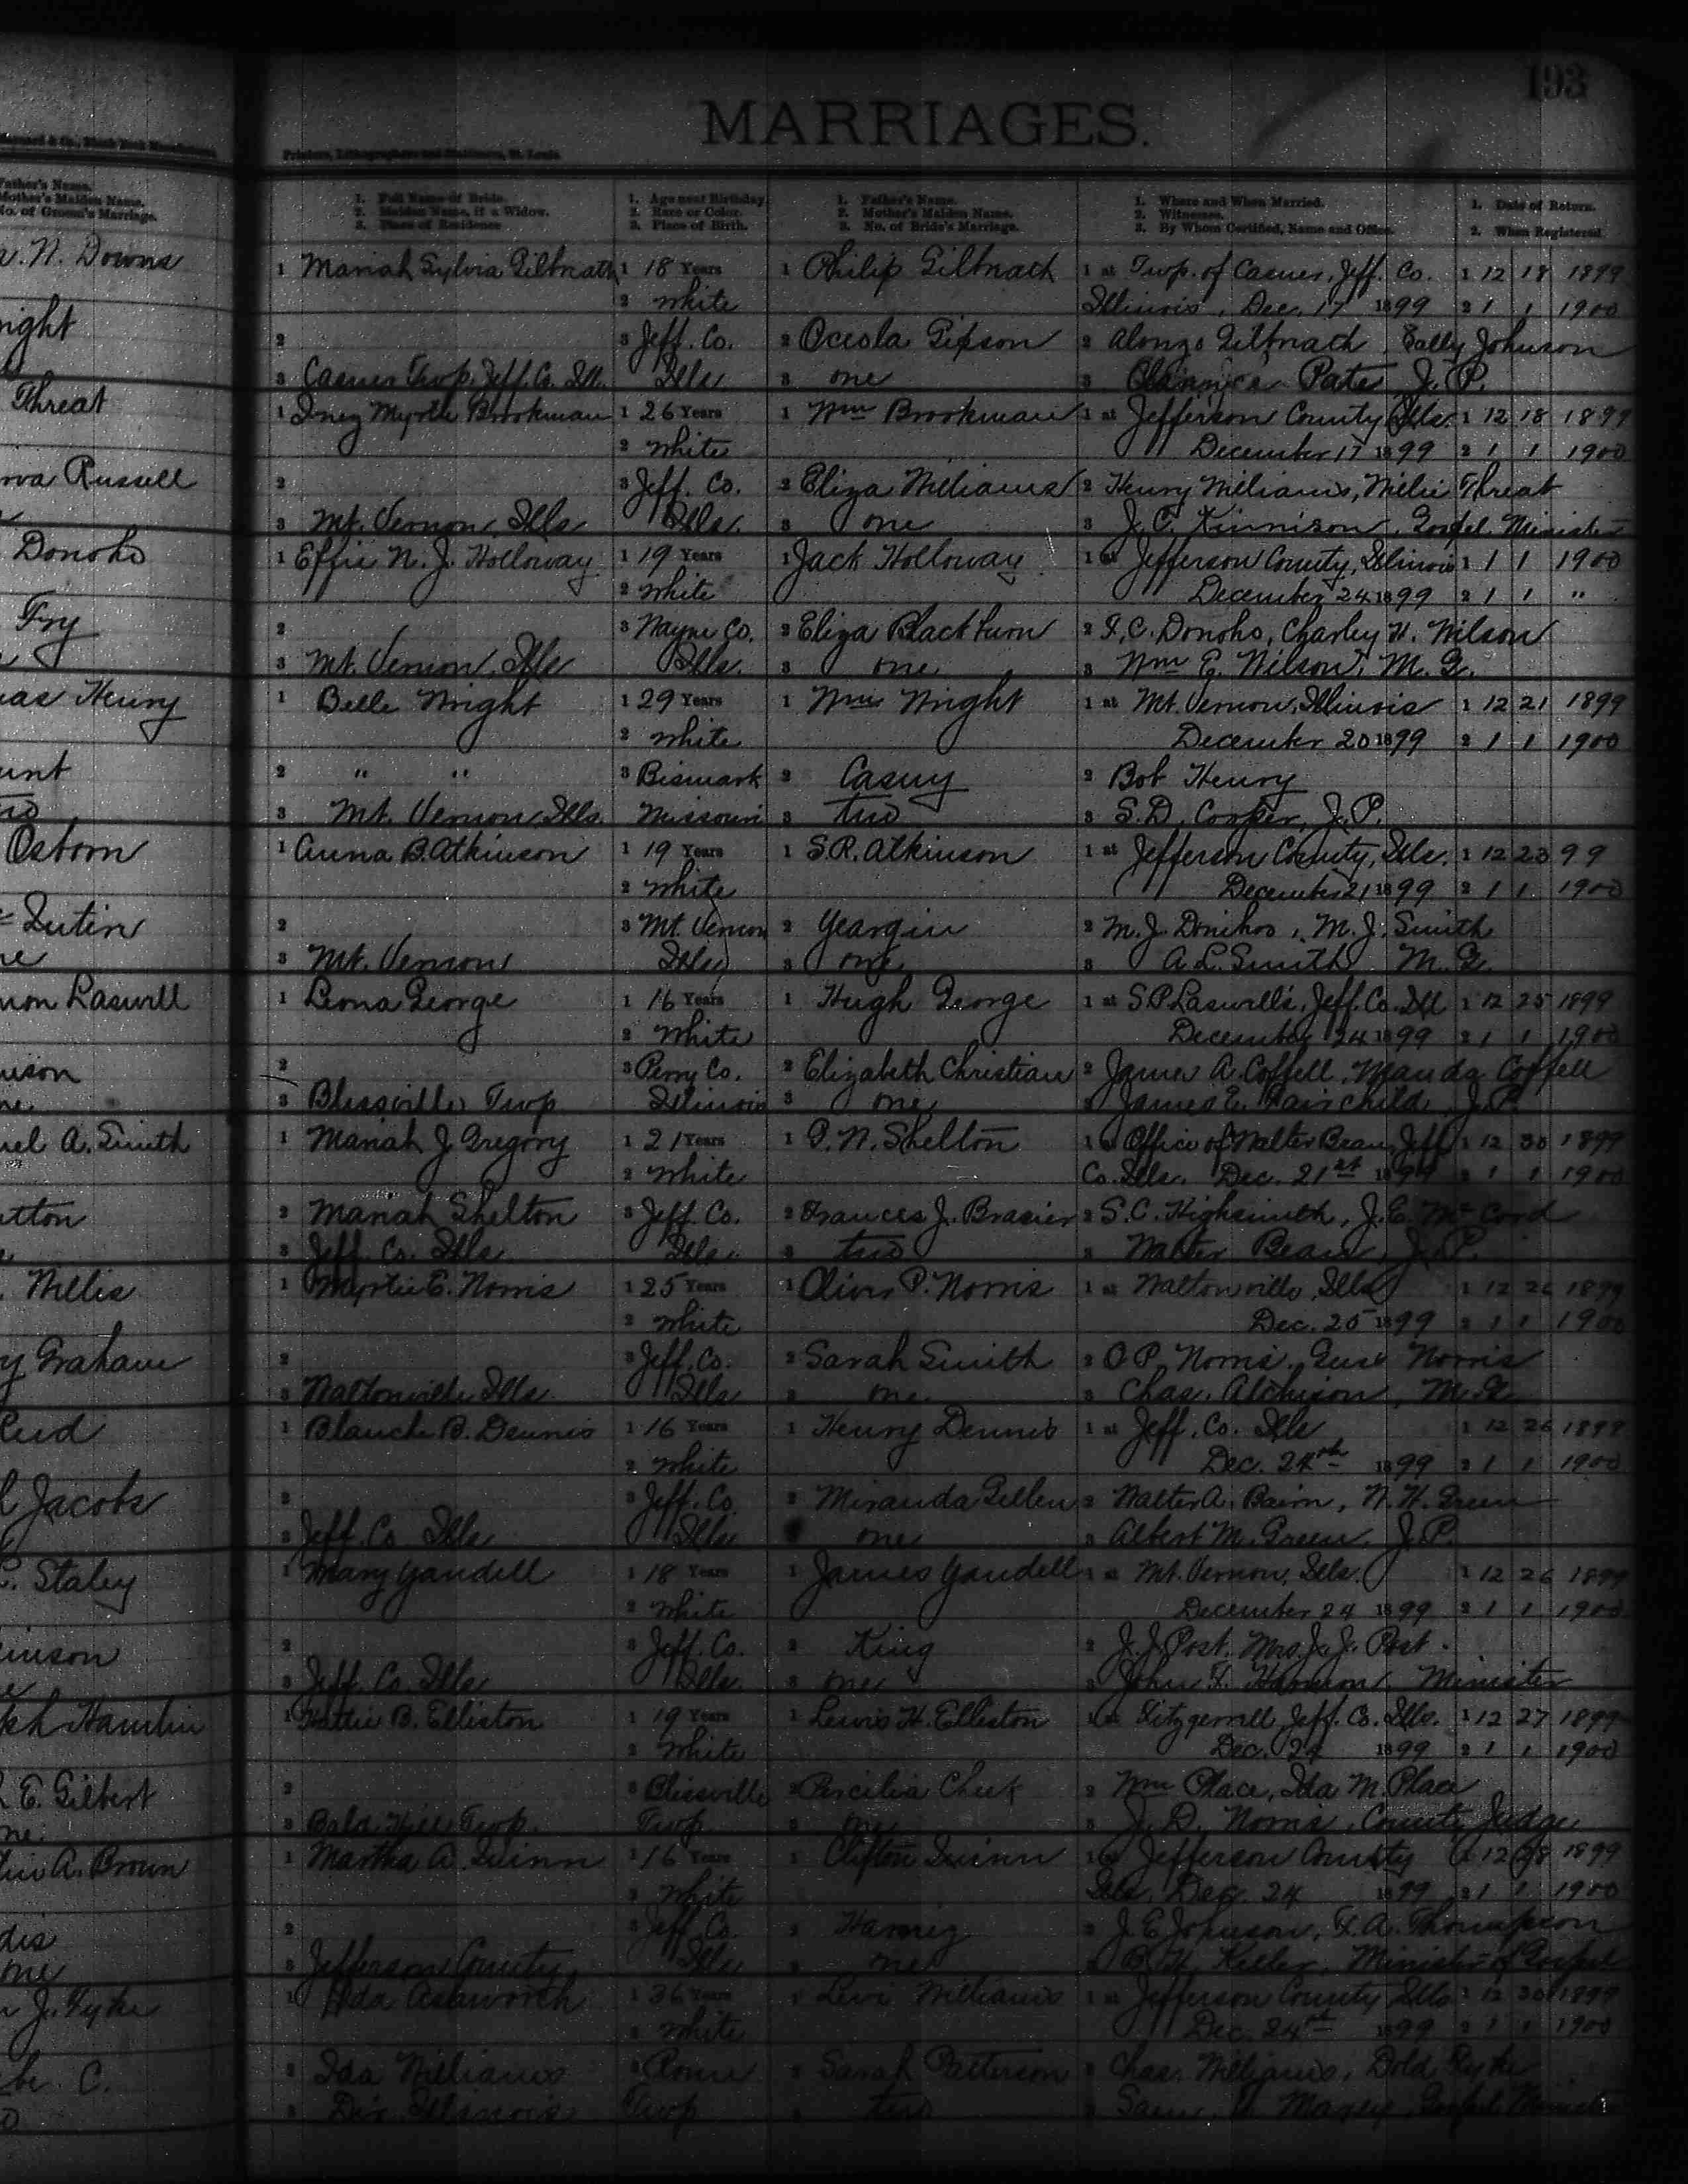 193
MARRIAGES.
Printers, Lithographers and Stationers, St. Louis.
Father's Name.
Mother's Maiden Name.
No. of Groom's Marriage.
1. Full Name of Bride.
2. Maiden Name, if a Widow.
3. Place of Residence
1. Age next Birthday.
2. Race or Color.
3. Place of Birth.
1. Father's Name.
2. Mother's Maiden Name.
3. No. of Bride's Marriage.
1. Where and When Married.
2. Witnesses.
3. By Whom Certified, Name and Office.
1. Date of Return.
2. When Registered.
N. Downs
1 Mariah Sylvia Gilbreath 1 18 Years 1 Philip Gilbreath 1 at Twp. of Casner, Jeff. Co. 1 12 18 1899
2 White Illinois, Dec. 17 1899 2 1 1 1900
2 3 Jeff. Co. 2 Oceola Gipson 2 Alonzo Gilbreath, Sally Johnson
3 Casner Twp. Jeff. Co. Ill. Ills 3 one 3 Pate J. P.
Threat
1 Inez Myrtle Brookman 1 26 Years 1 Wm Brookman 1 at Jefferson County Ills. 1 12 18 1899
2 White December 17 1899 2 1 1 1900
Russell
2 3 Jeff. Co. 2 Eliza Williams 2 Henry Williams, Willie Threat
3 Mt. Vernon, Ills Ills. 3 one 3 J. C. Kinnison, Gospel Minister
Donoho
1 Effie N. J. Holloway 1 19 Years 1 Jack Holloway 1 at Jefferson County, Illinois 1 1 1 1900
2 White December 24 1899 2 1 1 "
Fry
2 3 Wayne Co. 2 Eliza Blackburn 2 I. C. Donoho, Charley H. Wilson
3 Mt. Vernon, Ills Ills. 3 one 3 Wm E. Wilson, M. G.
Henry
1 Belle Wright 1 29 Years 1 Wm Wright 1 at Mt. Vernon, Illinois 1 12 21 1899
2 White December 20 1899 2 1 1 1900
2 " " 3 Bismark 2 Casey 2 Bob Henry
3 Mt. Vernon, Ills. Missouri 3 two 3 S. D. Cooper, J. P.
Osborn
1 Anna B. Atkinson 1 19 Years 1 S. R. Atkinson 1 at Jefferson County, Ills. 1 12 23 99
2 White December 21 1899 2 1 1 1900
2 3 Mt. Vernon 2 Yeargin 2 M. J. Donihoo, M. J. Smith
3 Mt. Vernon Ills 3 one 3 A. L. Smith M. G.
Laswell
1 Leona George 1 16 Years 1 Hugh George 1 at S. P. Laswell's, Jeff. Co. Ill 1 12 25 1899
2 White December 24 1899 2 1 1 1900
2 3 Perry Co. 2 Elizabeth Christian 2 James A. Coffell, Manda Coffell
3 Blissville Twp Illinois 3 one 3 James E. Fairchild, J. P.
A. Smith
1 Mariah J Gregory 1 21 Years 1 P. N. Shelton 1 at Office of Walter Bean, Jeff 1 12 30 1899
2 White Co. Ills. Dec. 21st 1899 2 1 1 1900
2 Mariah Shelton 3 Jeff. Co. 2 Frances J. Brasier 2 S. C. Highsmith, J. E. McCord
3 Jeff. Co. Ills Ills. 3 two 3 Walter Bean, J. P.
Willis
1 Myrtie E. Norris 1 25 Years 1 Oliver P. Norris 1 at Waltonville, Ills 1 12 26 1899
2 White Dec. 25 1899 2 1 1 1900
Graham
2 3 Jeff. Co. 2 Sarah Smith 2 O. P. Norris, Norris
3 Waltonville Ills Ills 3 one 3 Chas. Atchison, M. G.
Reid
1 Blanch B. Dennis 1 16 Years 1 Henry Dennis 1 at Jeff. Co. Ills 1 12 26 1899
2 White Dec. 24th 1899 2 1 1 1900
Jacobs
2 3 Jeff. Co. 2 Miranda Gellen 2 Walter A. Bairn, N. H. Green
3 Jeff. Co. Ills Ills 3 one 3 Albert M. Green, J. P.
Staley
1 Mary Yandell 1 18 Years 1 James Yandell 1 at Mt. Vernon, Ills. 1 12 26 1899
2 White December 24 1899 2 1 1 1900
2 3 Jeff. Co. 2 King 2 J. J. Post, Mrs. J. J. Post.
3 Jeff. Co. Ills Ills. 3 one 3 John T. Minister
1 Hattie B. Elliston 1 19 Years 1 Lewis H. Elliston 1 at Fitzgerrell Jeff. Co. Ills. 1 12 27 1899
2 White Dec. 24 1899 2 1 1 1900
E. Gilbert
2 3 Blissville 2 Percilia Cheek 2 Wm Place, Ida M. Place
3 Bald Hill Twp. Twp 3 one 3 J. D. Norris, County Judge
A. Brown
1 Martha A. Quinn 1 16 Years 1 Clifton Quinn 1 at Jefferson County 1 12 28 1899
2 White Ills. Dec. 24 1899 2 1 1 1900
2 3 Jeff. Co. 2 2 J. E. Johnson, F. A. Thompson
3 Jefferson County Ills 3 one 3 Keller, Minister of Gospel
J. Fyke
1 Ida Ashworth 1 36 Years 1 Levi Williams 1 at Jefferson County Ills 1 12 30 1899
2 White Dec. 24th 1899 2 1 1 1900
2 Ida Williams 3 Rome 2 Sarah Patterson 2 Chas. Williams, Fyke
3 Dix Illinois Twp 3 two 3 Gospel Minister